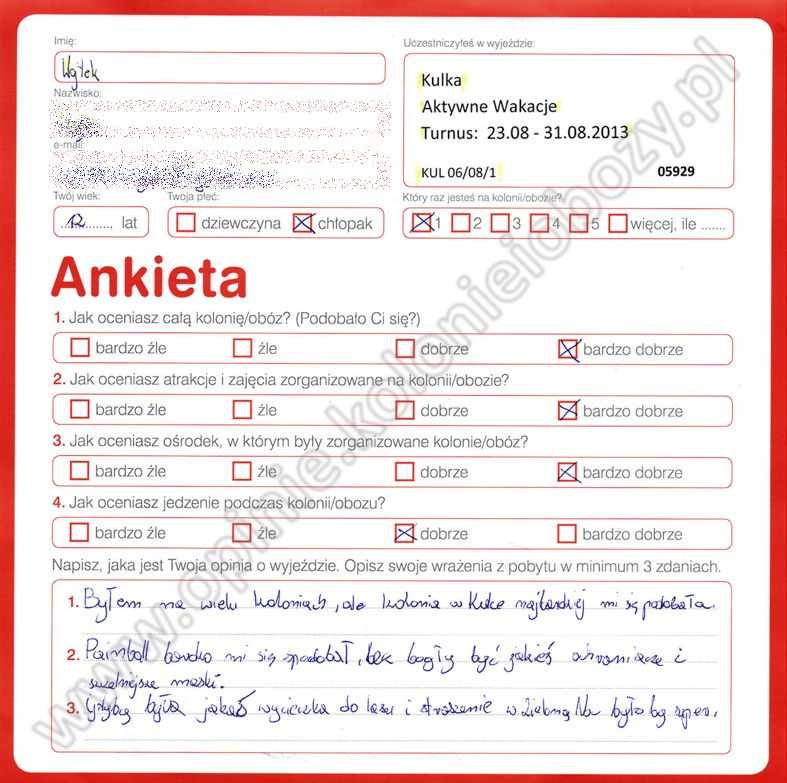 Imię:
Wojtek
Nazwisko:
e-mail:
Twój wiek:
12 lat
Twoja płeć:
dziewczyna chłopak
Uczestniczyłeś w wyjeździe:
Kulka
Aktywne Wakacje
Turnus: 23.08 - 31.08.2013
KUL 06/08/1 05929
Który raz jesteś na kolonii/obozie?
1 2 3 4 5 więcej, ile .......
Ankieta
1. Jak oceniasz całą kolonię/obóz? (Podobało Ci się?)
bardzo źle źle dobrze bardzo dobrze
2. Jak oceniasz atrakcje i zajęcia zorganizowane na kolonii/obozie?
bardzo źle źle dobrze bardzo dobrze
3. Jak oceniasz ośrodek, w którym były zorganizowane kolonie/obóz?
bardzo źle źle dobrze bardzo dobrze
4. Jak oceniasz jedzenie podczas kolonii/obozu?
bardzo źle źle dobrze bardzo dobrze
Napisz, jaka jest Twoja opinia o wyjeździe. Opisz swoje wrażenia z pobytu w minimum 3 zdaniach.
1. Byłem na wielu koloniach, ale kolonia w Kulce najbardziej mi się podobała.
2. Painball bardzo mi się spodobał, być jakieś ochraniacze i
maski.
3. Gdyby była jakaś wycieczka do lasu i straszenie w było by super.
www.opinie.kolonieiobozy.pl